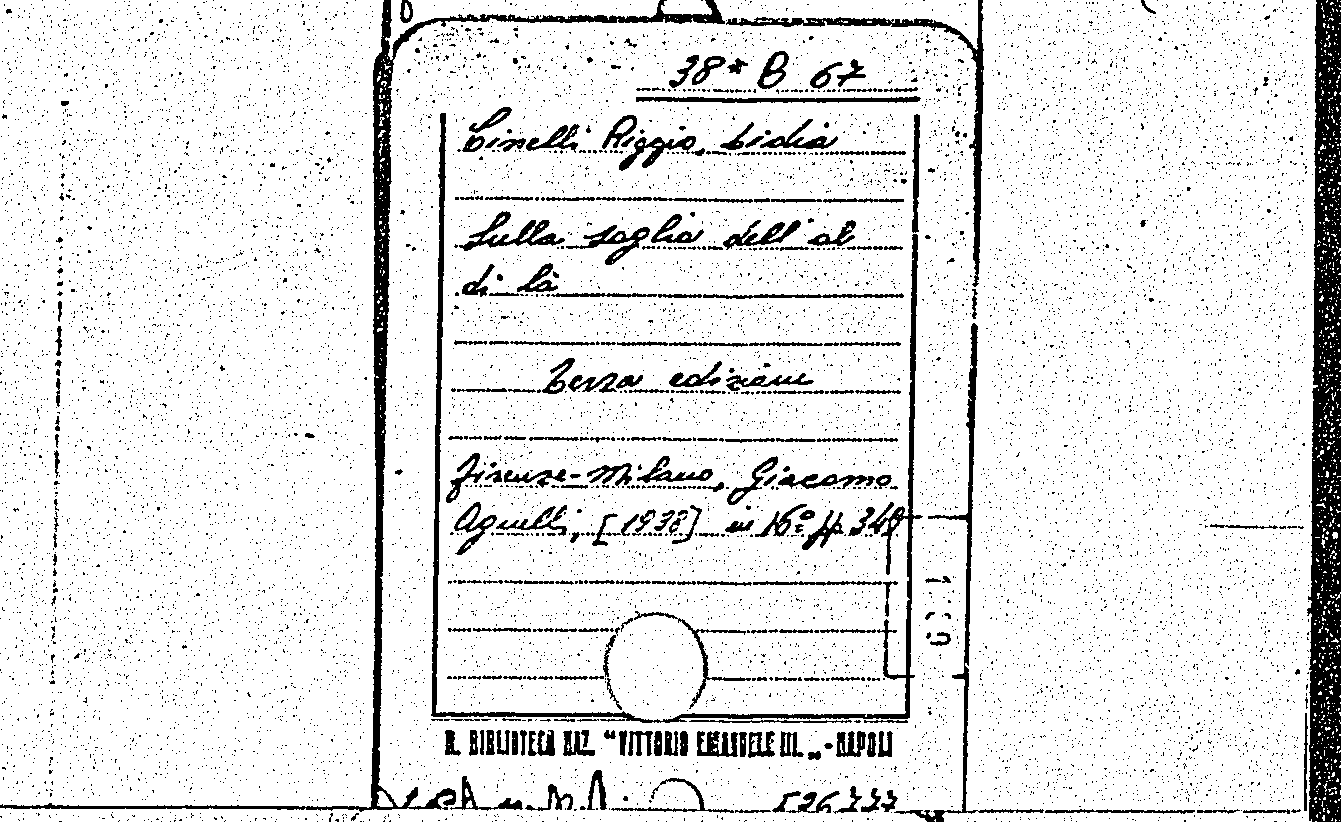 38* B 67
Cinelli Riggio, Lidia
Sulla soglia dell'al
di là
Terza edizione
Firenze-Milano, Giacomo
Agnelli, [1938] in 16° pp. 340
R. BIBLIOTECA NAZ. "VITTORIO EMANUELE III. „ - NAPOLI